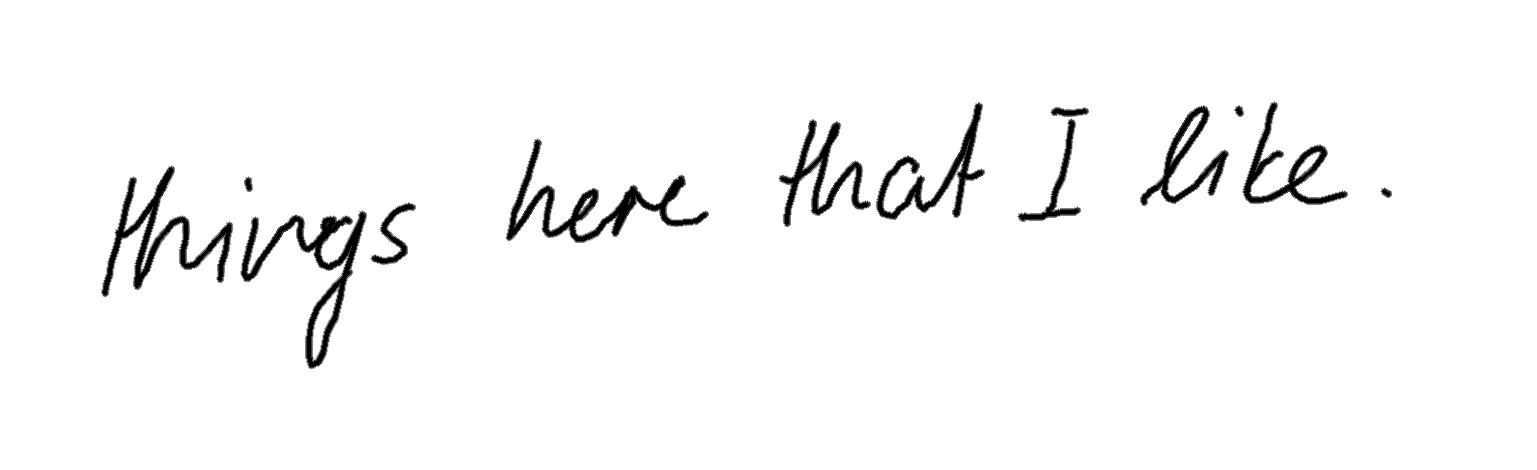 things here that I like.